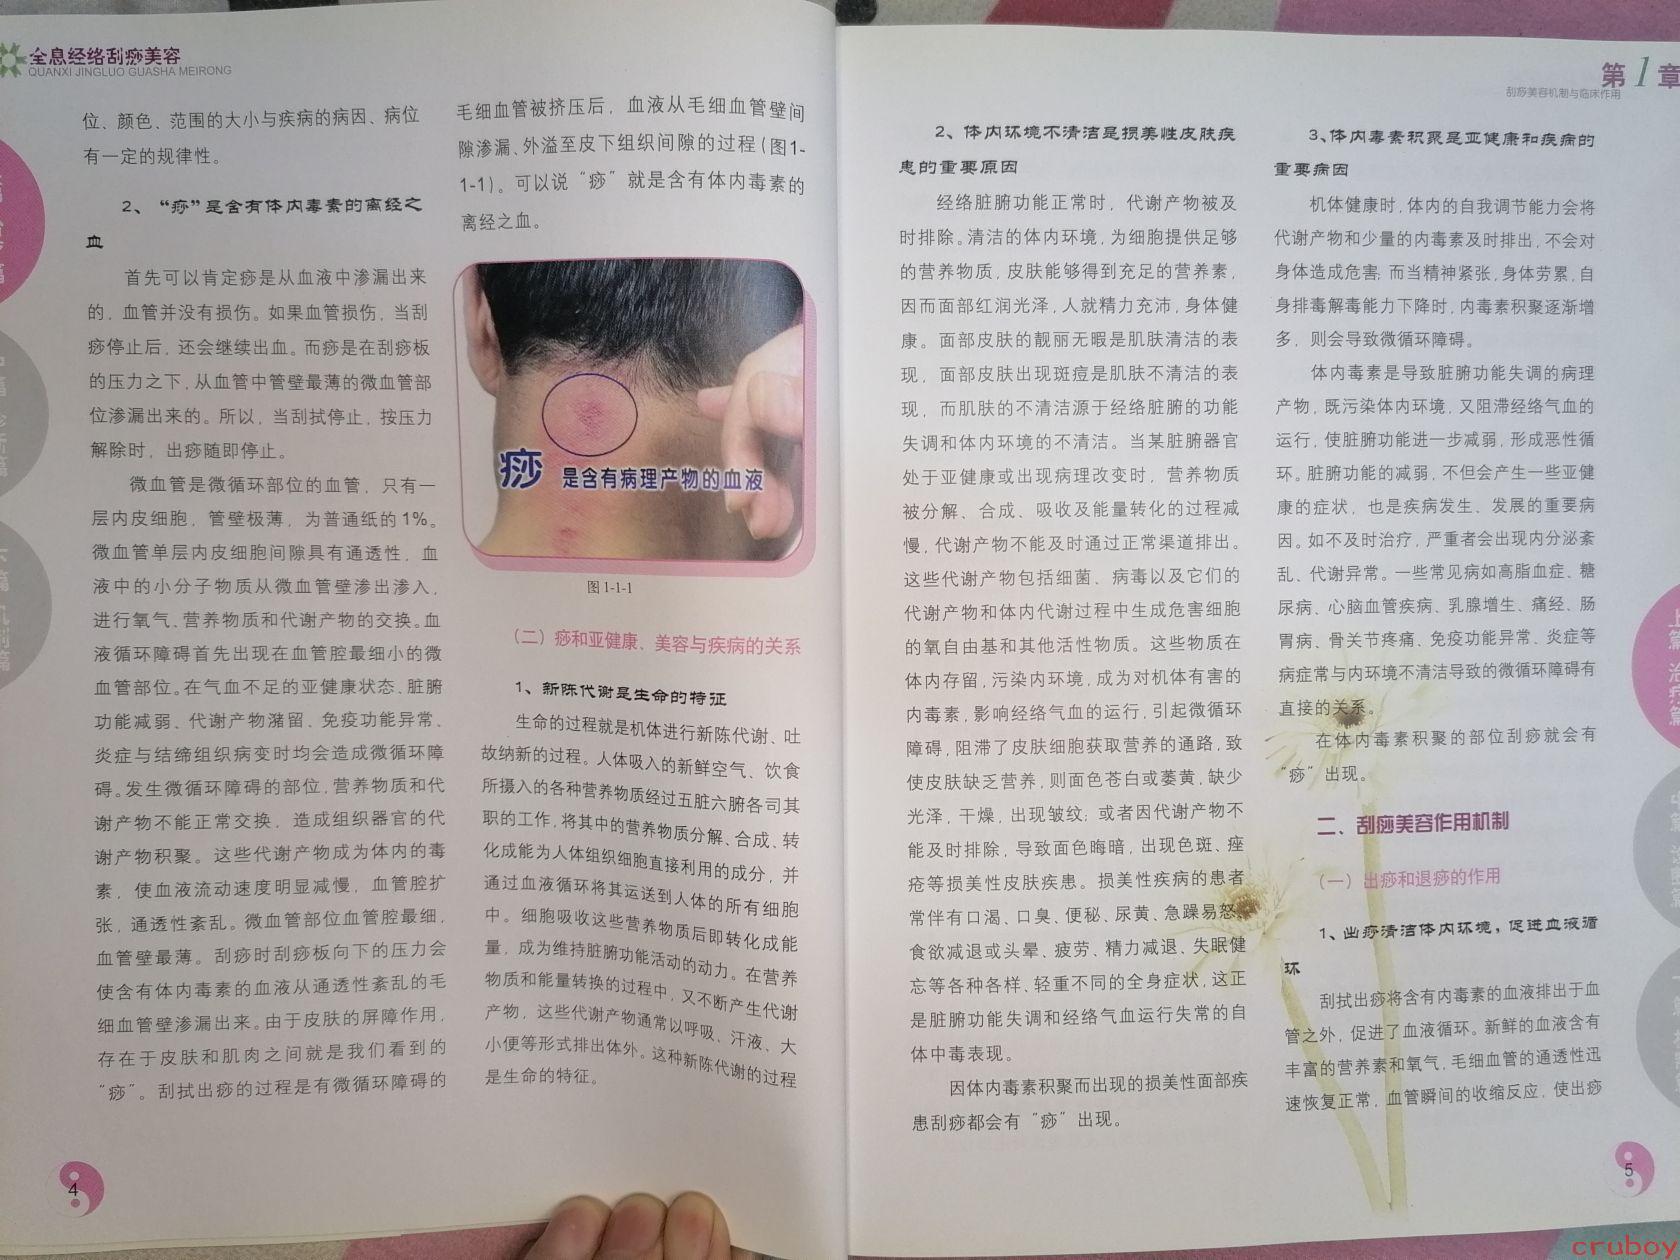 全息经络刮痧美容
QUANXI JINGLUO GUASHA MEIRONG
位、颜色、范围的大小与疾病的病因、病位
有一定的规律性。
2、“痧”是含有体内毒素的离经之
血
首先可以肯定痧是从血液中渗漏出来
的，血管并没有损伤。如果血管损伤，当刮
痧停止后，还会继续出血。而痧是在刮痧板
的压力之下，从血管中管壁最薄的微血管部
位渗漏出来的。所以，当刮拭停止，按压力
解除时，出痧随即停止。
微血管是微循环部位的血管，只有一
层内皮细胞，管壁极薄，为普通纸的1%。
微血管单层内皮细胞间隙具有通透性，血
液中的小分子物质从微血管壁渗出渗入，
进行氧气、营养物质和代谢产物的交换。血
液循环障碍首先出现在血管腔最细小的微
血管部位。在气血不足的亚健康状态、脏腑
功能减弱、代谢产物潴留、免疫功能异常、
炎症与结缔组织病变时均会造成微循环障
碍。发生微循环障碍的部位，营养物质和代
谢产物不能正常交换，造成组织器官的代
谢产物积聚。这些代谢产物成为体内的毒
素，使血液流动速度明显减慢，血管腔扩
张，通透性紊乱。微血管部位血管腔最细，
血管壁最薄。刮痧时刮痧板向下的压力会
使含有体内毒素的血液从通透性紊乱的毛
细血管壁渗漏出来。由于皮肤的屏障作用，
存在于皮肤和肌肉之间就是我们看到的
“痧”。刮拭出痧的过程是有微循环障碍的
毛细血管被挤压后，血液从毛细血管壁间
隙渗漏、外溢至皮下组织间隙的过程（图1-
1-1）。可以说“痧”就是含有体内毒素的
离经之血。
痧 是含有病理产物的血液
图1-1-1
（二）痧和亚健康、美容与疾病的关系
1、新陈代谢是生命的特征
生命的过程就是机体进行新陈代谢、吐
故纳新的过程。人体吸入的新鲜空气、饮食
所摄入的各种营养物质经过五脏六腑各司其
职的工作，将其中的营养物质分解、合成、转
化成能为人体组织细胞直接利用的成分，并
通过血液循环将其运送到人体的所有细胞
中。细胞吸收这些营养物质后即转化成能
量，成为维持脏腑功能活动的动力。在营养
物质和能量转换的过程中，又不断产生代谢
产物，这些代谢产物通常以呼吸、汗液、大
小便等形式排出体外。这种新陈代谢的过程
是生命的特征。
4
第1章
刮痧美容机制与临床作用
2、体内环境不清洁是损美性皮肤疾
患的重要原因
经络脏腑功能正常时，代谢产物被及
时排除。清洁的体内环境，为细胞提供足够
的营养物质，皮肤能够得到充足的营养素，
因而面部红润光泽，人就精力充沛，身体健
康。面部皮肤的靓丽无暇是肌肤清洁的表
现，面部皮肤出现斑痘是肌肤不清洁的表
现，而肌肤的不清洁源于经络脏腑的功能
失调和体内环境的不清洁。当某脏腑器官
处于亚健康或出现病理改变时，营养物质
被分解、合成、吸收及能量转化的过程减
慢，代谢产物不能及时通过正常渠道排出。
这些代谢产物包括细菌、病毒以及它们的
代谢产物和体内代谢过程中生成危害细胞
的氧自由基和其他活性物质。这些物质在
体内存留，污染内环境，成为对机体有害的
内毒素，影响经络气血的运行，引起微循环
障碍，阻滞了皮肤细胞获取营养的通路，致
使皮肤缺乏营养，则面色苍白或萎黄，缺少
光泽，干燥，出现皱纹；或者因代谢产物不
能及时排除，导致面色晦暗，出现色斑、痤
疮等损美性皮肤疾患。损美性疾病的患者
常伴有口渴、口臭、便秘、尿黄、急躁易怒、
食欲减退或头晕、疲劳、精力减退、失眠健
忘等各种各样、轻重不同的全身症状，这正
是脏腑功能失调和经络气血运行失常的自
体中毒表现。
因体内毒素积聚而出现的损美性面部疾
患刮痧都会有“痧”出现。
3、体内毒素积聚是亚健康和疾病的
重要病因
机体健康时，体内的自我调节能力会将
代谢产物和少量的内毒素及时排出，不会对
身体造成危害；而当精神紧张，身体劳累，自
身排毒解毒能力下降时，内毒素积聚逐渐增
多，则会导致微循环障碍。
体内毒素是导致脏腑功能失调的病理
产物，既污染体内环境，又阻滞经络气血的
运行，使脏腑功能进一步减弱，形成恶性循
环。脏腑功能的减弱，不但会产生一些亚健
康的症状，也是疾病发生、发展的重要病
因。如不及时治疗，严重者会出现内分泌紊
乱、代谢异常。一些常见病如高脂血症、糖
尿病、心脑血管疾病、乳腺增生、痛经、肠
胃病、骨关节疼痛、免疫功能异常、炎症等
病症常与内环境不清洁导致的微循环障碍有
直接的关系。
在体内毒素积聚的部位刮痧就会有
“痧”出现。
二、刮痧美容作用机制
（一）出痧和退痧的作用
1、出痧清洁体内环境，促进血液循
环
刮拭出痧将含有内毒素的血液排出于血
管之外，促进了血液循环。新鲜的血液含有
丰富的营养素和氧气，毛细血管的通透性迅
速恢复正常，血管瞬间的收缩反应，使出痧
上篇 治疗篇
5
cruboy